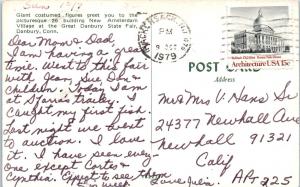 Sun 12/9
Giant costumed figures greet you to the
picturesque 26 building New Amsterdam
Village at the Great Danbury State Fair,
Danbury, Conn.
Dear Mom & Dad
I am having a great
time. Went to this fair
with Jean, Sue, Don &
children. Today I am
at Marie's trailer. I
caught my first fish.
Last night we went
to auction. I love
it. I have seen every-
one except Corte &
Cynthia. Guest to see them
in week
Love Julia
PM
1979
POST
Architecture USA 15c
Mr & Mrs V. Hans Sr
24377 Newhall Ave
Newhall 91321
Calif
Apt 225